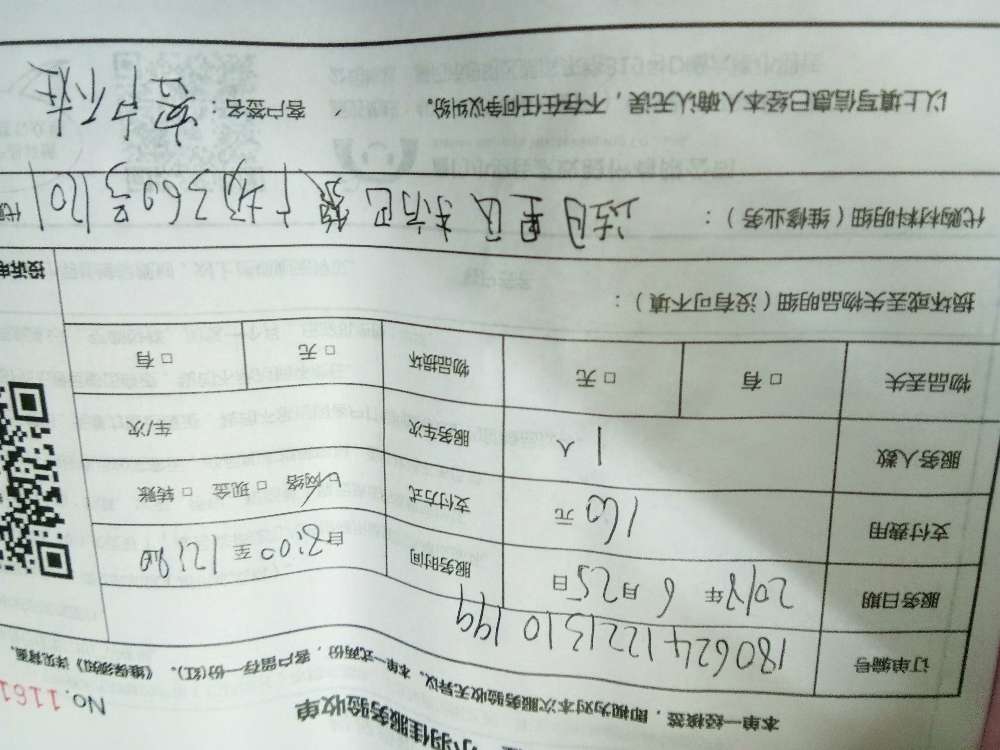 小羽佳服务验收单
No.1161
本单一经核签，即视为对本次服务验收无异议。本单一式两份，客户留存一份(红)。《维保须知》详见背面。
订单编号 180624122131 0199
服务日期 2018年 6月25日 服务时间 自8:00至12:00
支付费用 160元 支付方式 网络 □现金 □转账
服务人数 1人 服务车次 车/次
物品丢失 □有 □无 物品损坏 □无 □有
损坏或丢失物品明细（没有可不填）：
投诉电
代购材料明细（维修业务）： 广场369号1201
以上填写信息已经本人确认无误，不存在任何争议纠纷。 客户签名：客户不在